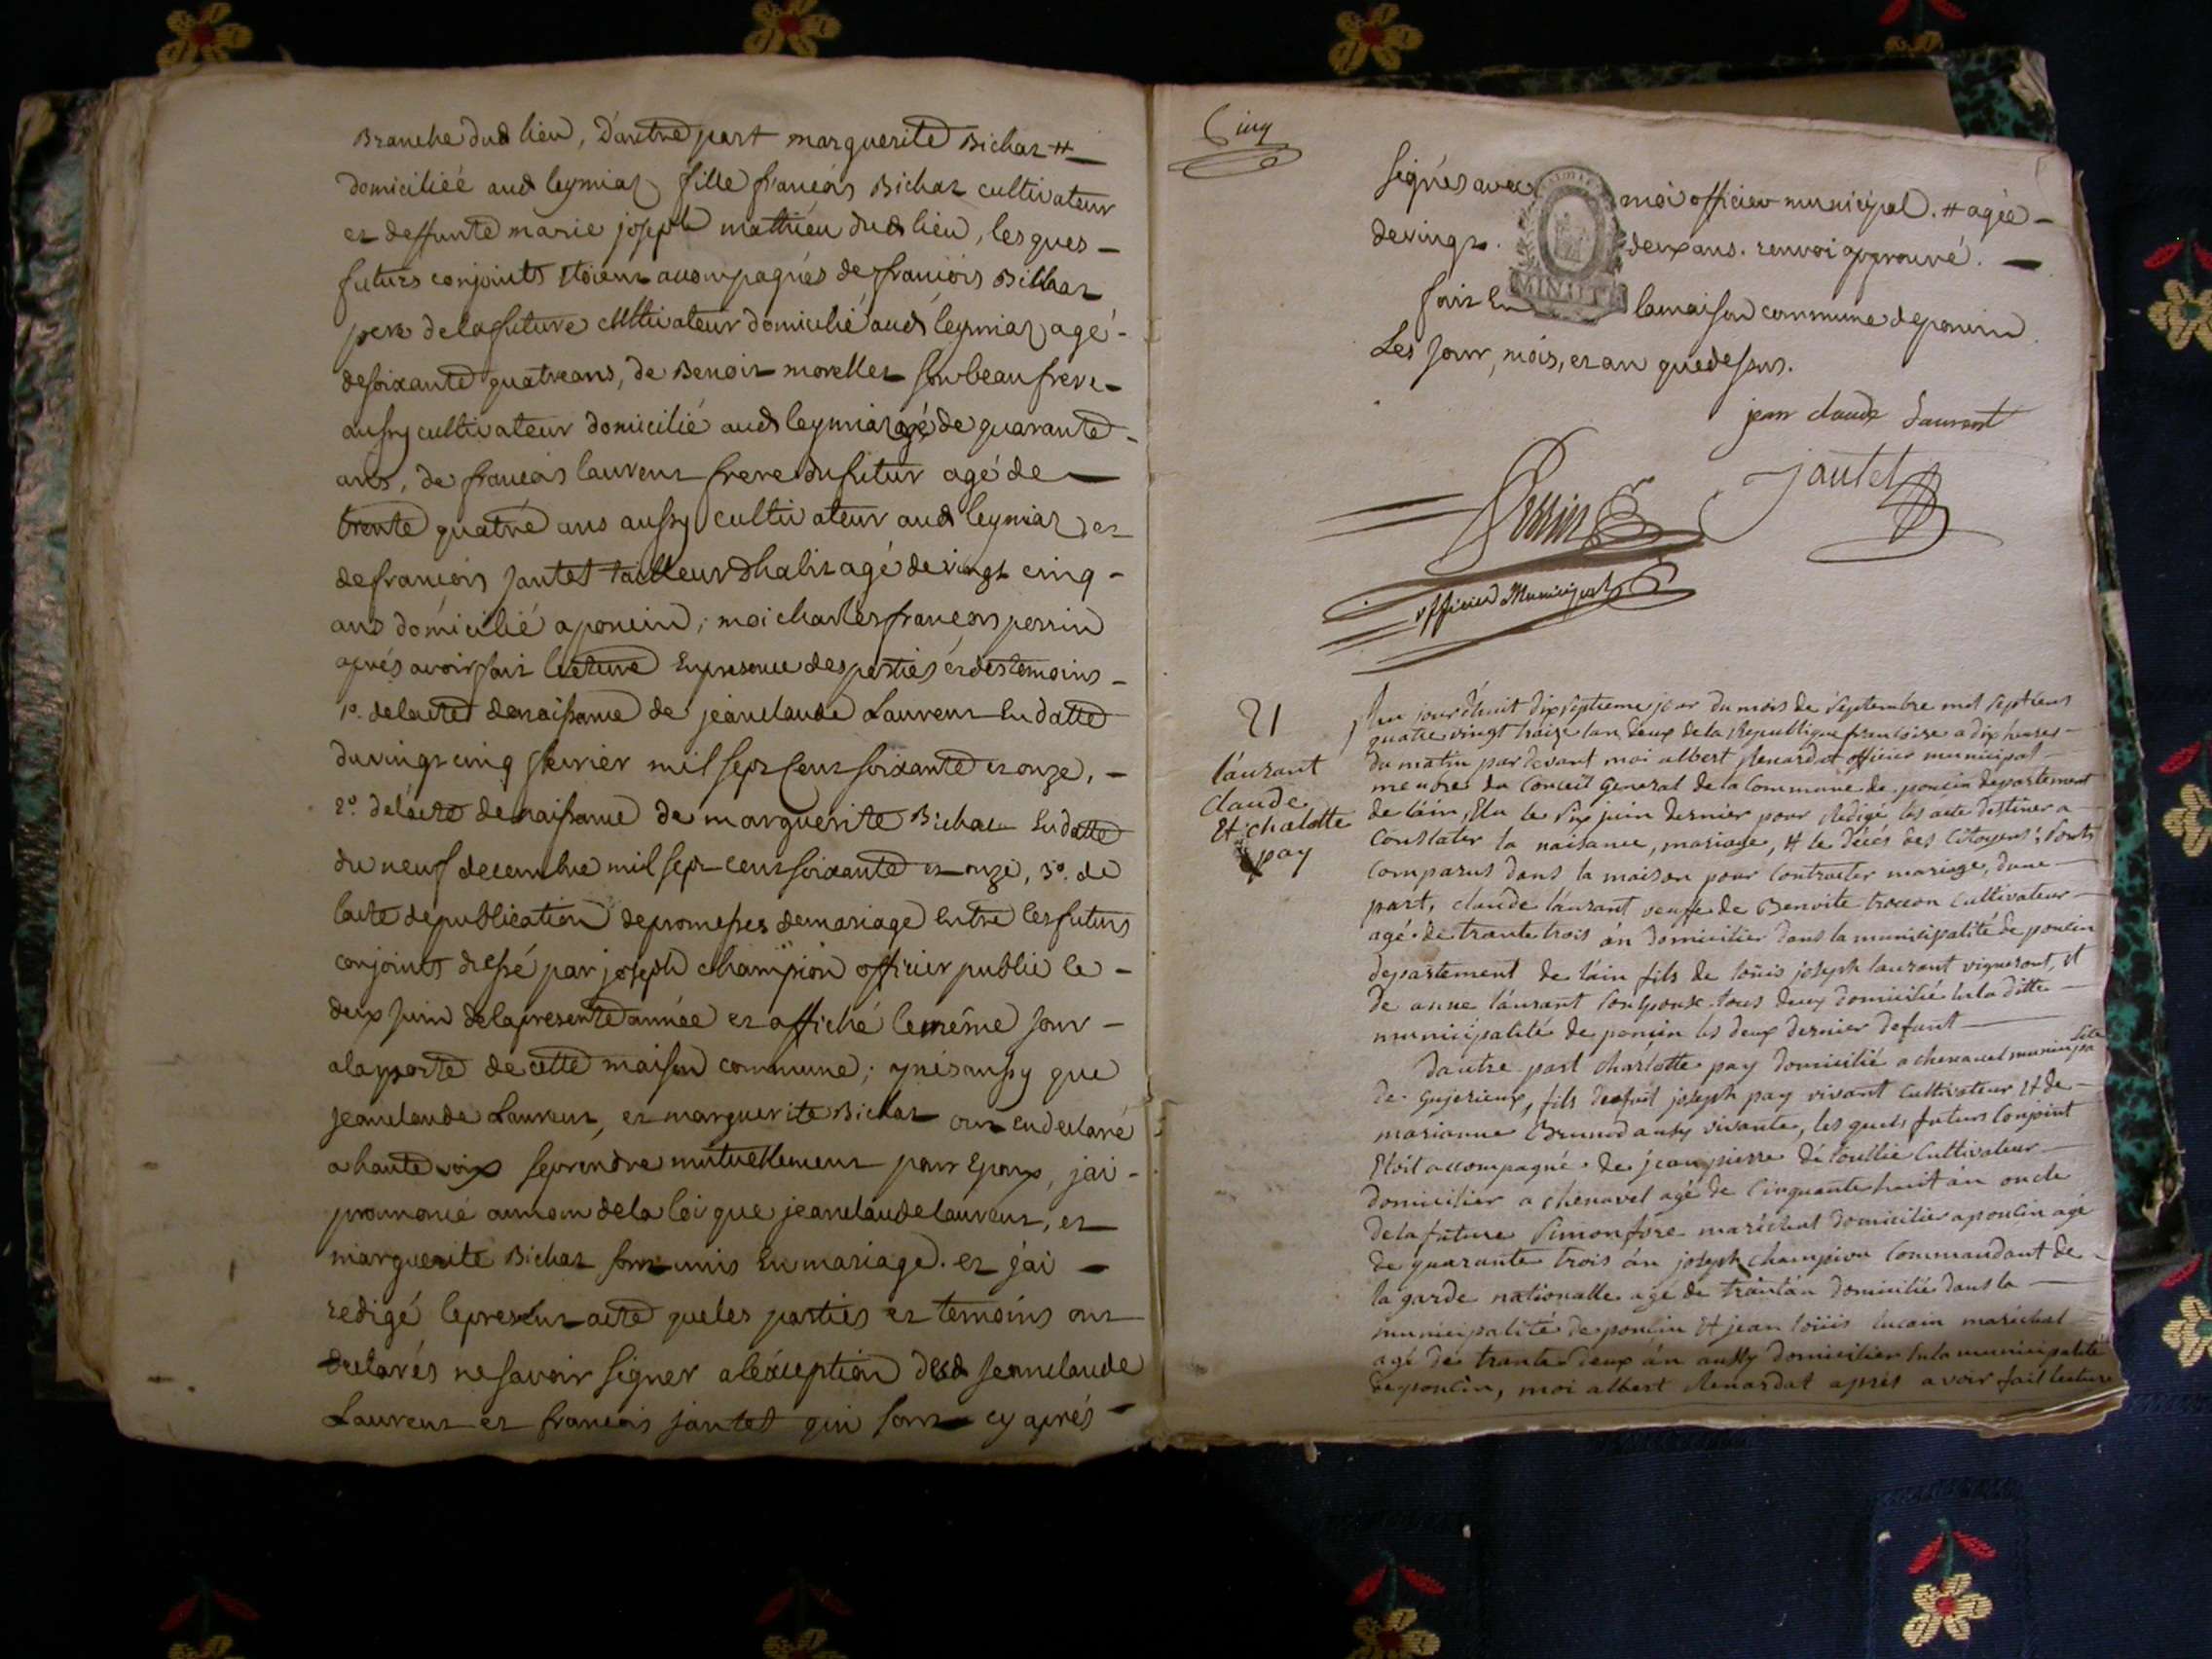 Branche dud lieu, D'autre part marguerite Bichat #
domiciliée aud leymiat fille françois Bichat cultivateur
et deffunte marie joseph mathieu dud lieu, lesques
futurs conjoints Etoient accompagnés de françois Bichat
pere de la future cultivateur domicilié aud leymiat agé
de soixante quatre ans, de Benoit morellet son beau frere
aussy cultivateur domicilié aud leymiat agé de quarante
ans, de françois laurent frere du futur agé de
trente quatre ans aussy cultivateur aud leymiat et
de françois jantet tailleur d'habit agé de vingt cinq
ans domicilié a poncin; moi charles françois perrin
aprés avoir fait lecture En presence des parties et des temoins
1º. de lacte de naissance de jean claude Laurent En datte
du vingt cinq fevrier mil sept cent soixante et onze,
2º. de lacte de naissance de marguerite Bichat En datte
du neuf decembre mil sept cent soixante et onze, 3º. de
lacte de publication de promesses de mariage Entre les futurs
conjoints dressé par joseph champion officier public le
deux juin de la presente année et affiché le même jour
a la porte de cette maison commune; aprés aussy que
jean claude Laurent, et marguerite Bichat ont En declaré
a haute voix se prendre mutuellement pour Epoux, j'ai
prononcé au nom de la loi que jean claude laurent, et
marguerite Bichat sont unis En mariage. et j'ai
redigé le present acte que les parties et temoins ont
declarés ne savoir signer a léxception dud jean claude
Laurent et françois jantet qui sont cy aprés
Cinq
signés avec moi officier municipal. # agée
de vingt deux ans. renvoi approuvé.
MINUTE
fait En la maison commune de poncin
Les jour, mois, et an que dessus.
jean claude Laurent
Perrin jantet
officier Municipal
21
láurant
Claude
Et chalotte
pay
Au jourdhuit dix septieme jour du mois de septembre mil sept cens
quatre vingt traize lan deux de la Republique francoise a dix heures
du matin par devant moi albert Renardat officier municipal
membre du Conceil General de la Commune de poncin departement
de láin, Elu le six juin dernier pour Redigé les acte destiner a
Constater la naisance, mariage, et le décés des Citoyens: sonts
Comparus dans la maison pour Contracter mariage, dune
part, claude láurant veuffe de Benoite trocon Cultivateur
agé de trante trois án domicilier dans la municipalité de poncin
departement de láin fils de loüis joseph laurant vigneront, et
de anne láurant son Epouse tous deux domicilié En la ditte
municipalité de poncin les deux dernier defunt
Dautre part charlotte pay domicilié a chenavel municipalité
de Gujerieux, fils de fut joseph pay vivant Cultivateur et de
marianne Brunod ausy vivante, les quels futurs Conjoint
Etoit accompagné de jean pierre Cultivateur
domicilier a chenavel agé de Cinquante huit án oncle
de la future Simon fore maréchal domicilier a poncin agé
de quarante trois án joseph champion Commandant de
la garde nationalle agé de trantán domicilié dans la
municipalité de poncin et jean loüis lucain maréchal
agé de trante deux án aussy domicilier En la municipalité
de poncin, moi albert Renardat aprés avoir fait lecture